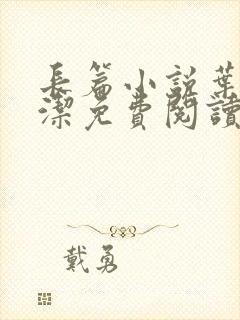 長篇小説葉
潔免費閱讀
戴勇